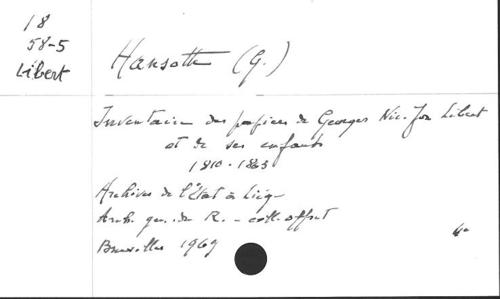 18
58-5
Libert
Hansotte (G.)
Inventaire des papiers de Georges Nic. Jos Libert
et de ses enfants
1810-1863
Archives de l'Etat à Liège
Arch. gén. du R. - coll. offset
Bruxelles 1969
4°